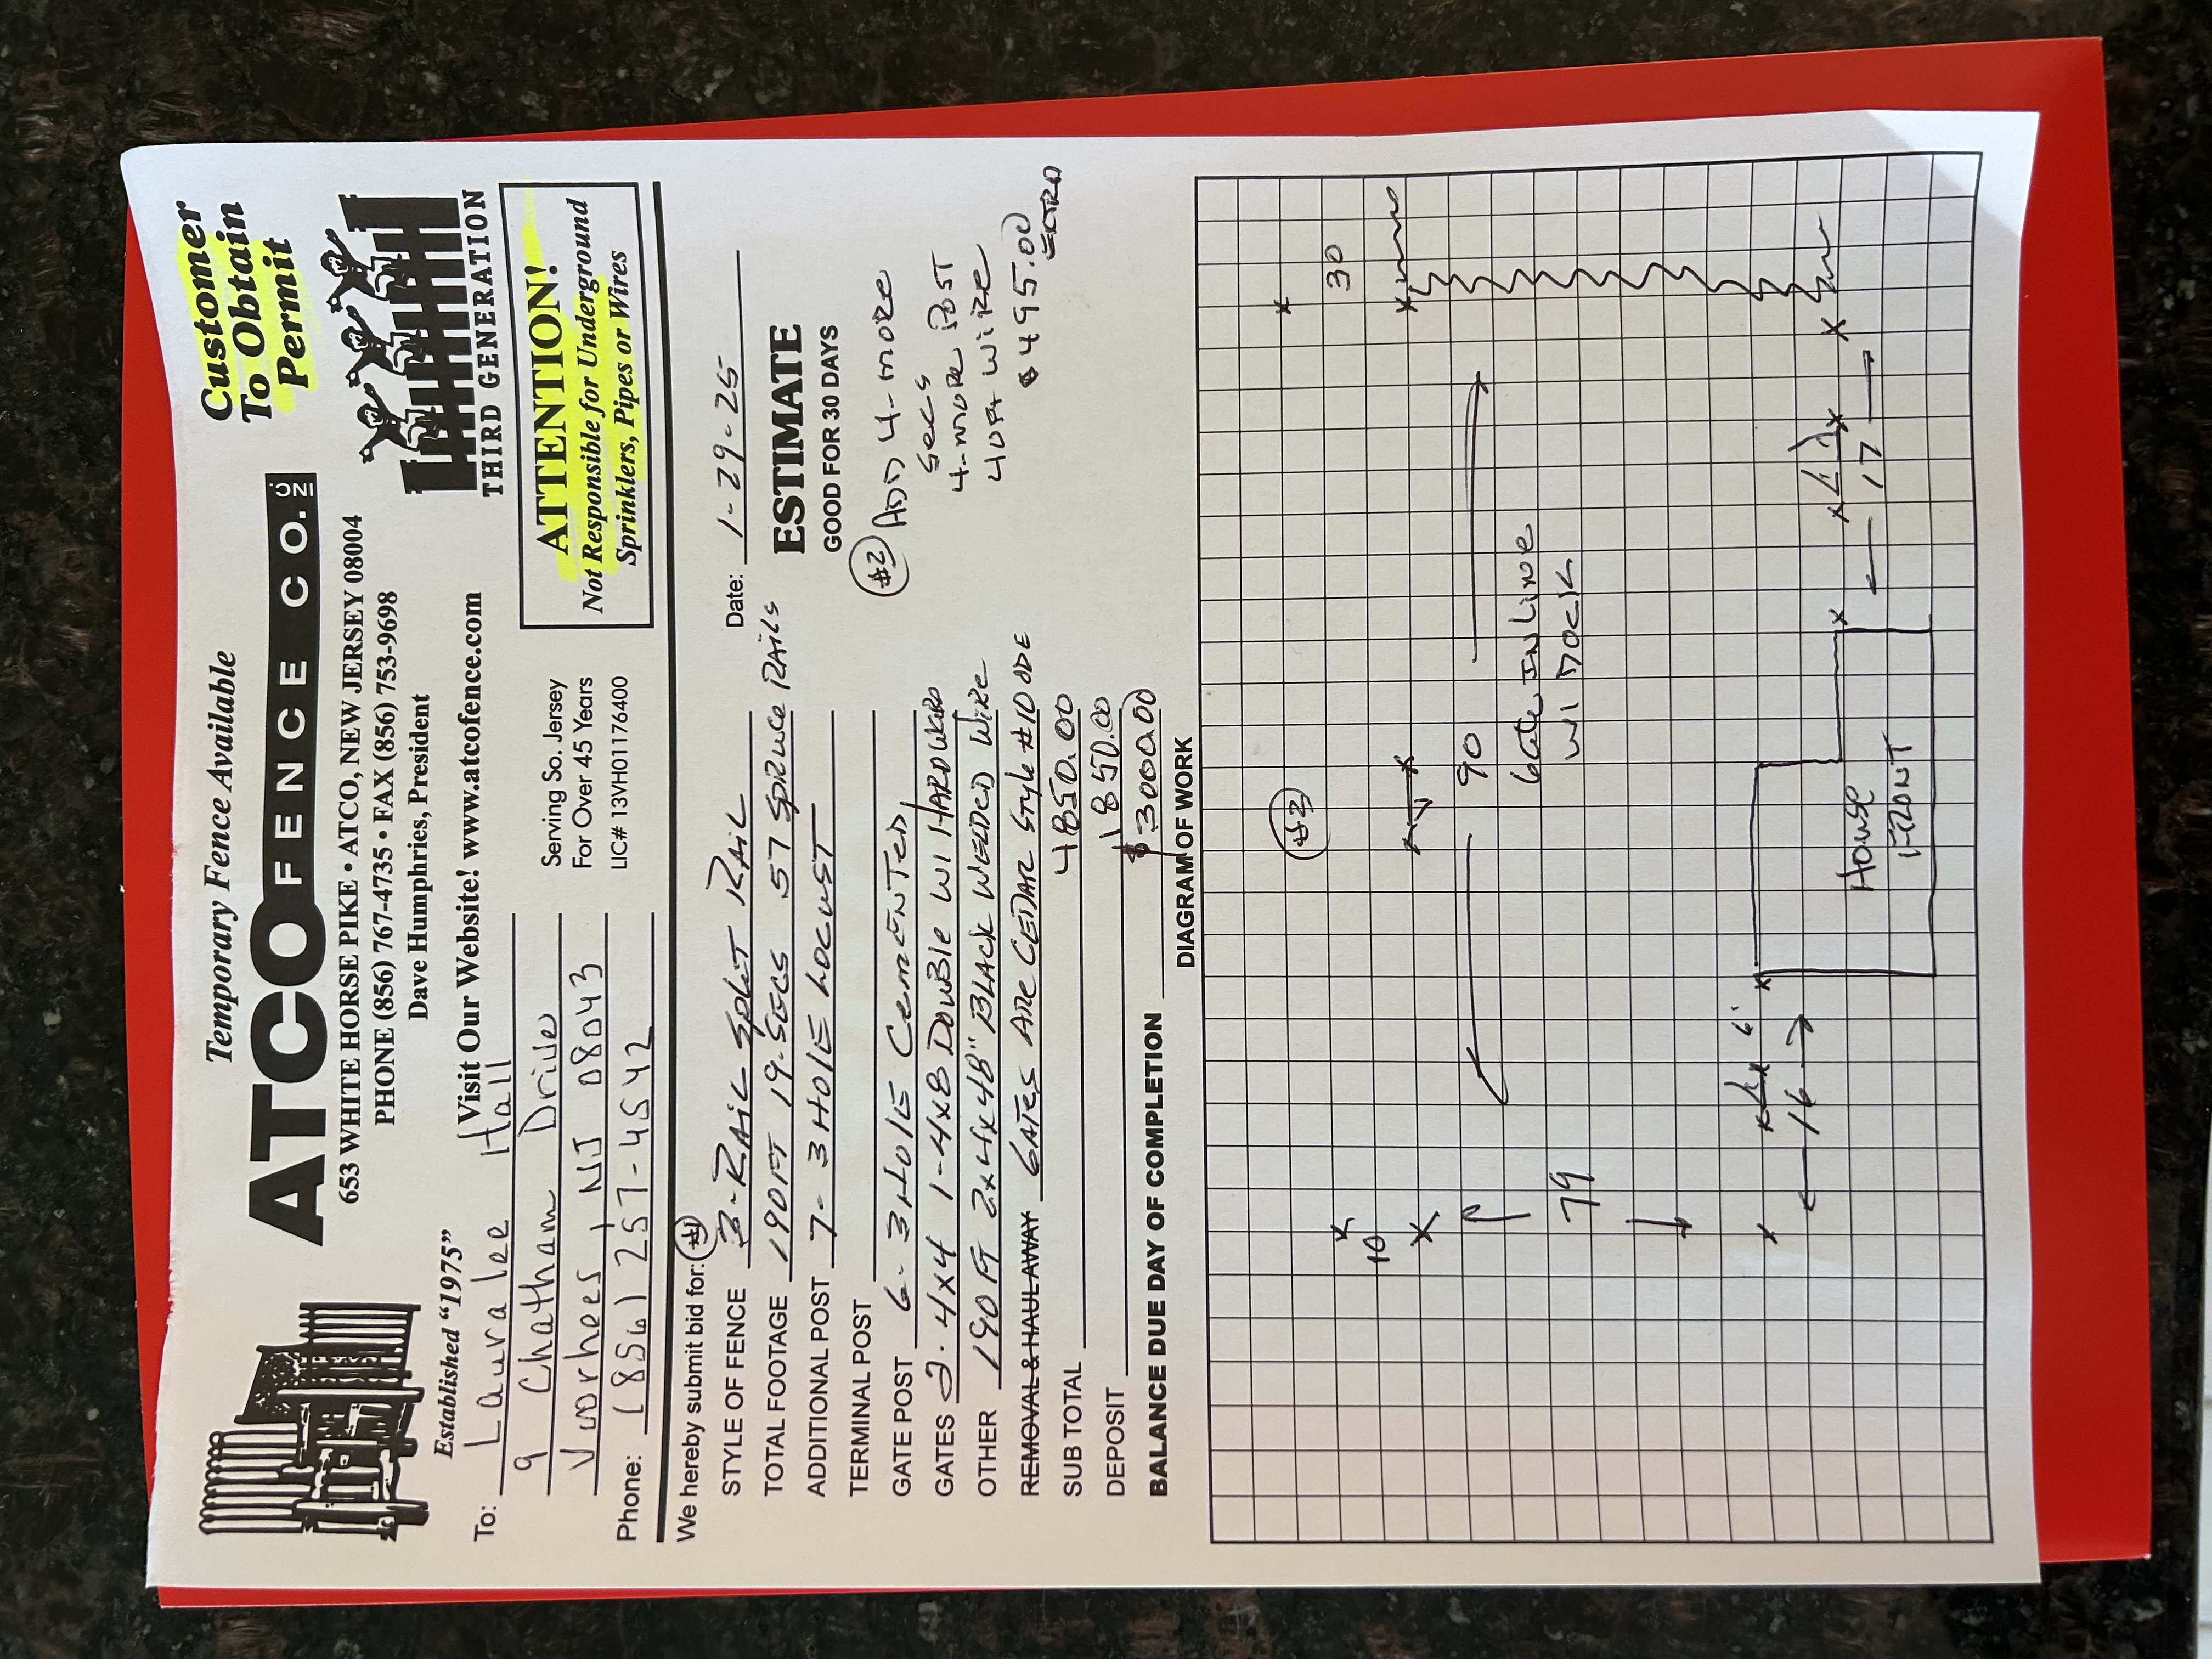 Temporary Fence Available
Customer
To Obtain
Permit
ATCO FENCE CO. INC
653 WHITE HORSE PIKE • ATCO, NEW JERSEY 08004
PHONE (856) 767-4735 • FAX (856) 753-9698
Dave Humphries, President
THIRD GENERATION
Established "1975"
Visit Our Website! www.atcofence.com
To: Lauralee Hall
9 Chatham Drive
Voorhees, NJ 08043
Phone: (856) 257-4542
Serving So. Jersey
For Over 45 Years
LIC# 13VH01176400
ATTENTION!
Not Responsible for Underground
Sprinklers, Pipes or Wires
We hereby submit bid for: #1
Date: 1-29-25
STYLE OF FENCE 3-RAIL SPLIT RAIL
TOTAL FOOTAGE 190FT 19-SECS 57 SPRUCE RAILS
ADDITIONAL POST 7- 3 HOLE LOCUST
TERMINAL POST
GATE POST 6- 3 HOLE CEMENTED
GATES 2- 4x4 1-4x8 DOUBLE W/ HARDWARE
OTHER 190 FT 2x4x48" BLACK WELDED WIRE
REMOVAL & HAUL AWAY GATES ARE CEDAR STYLE #10 DDE
SUB TOTAL 4850.00
DEPOSIT 1850.00
BALANCE DUE DAY OF COMPLETION $3000.00
ESTIMATE
GOOD FOR 30 DAYS
#2 ADD 4-MORE
SECS
4-MORE POST
40FT WIRE
$495.00
EXTRA
DIAGRAM OF WORK
#2
30
10
90
Gate IN LINE
W/ DOCK
79
6'
16
17
HOUSE
FRONT